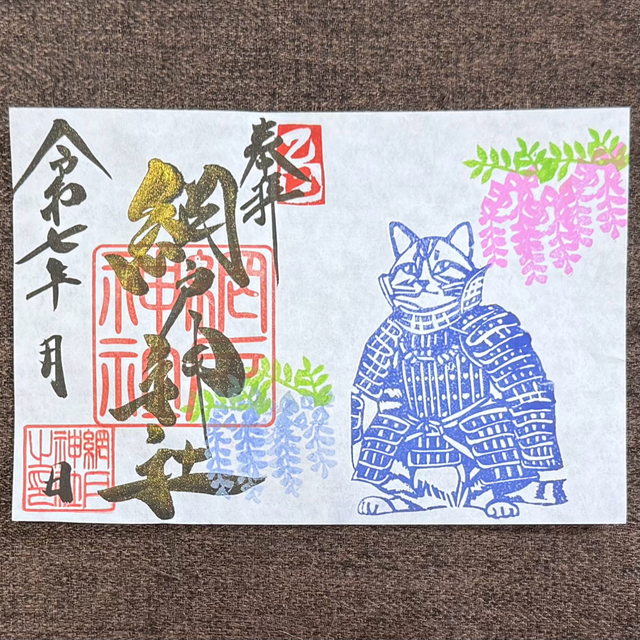 奉拝
乙巳
網戸神社
網戸神社
令和七年 月 日
網戸神社之印